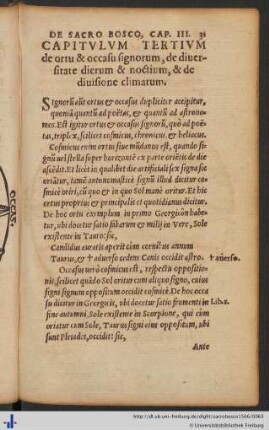 DE SACRO BOSCO, CAP. III. 31
CAPITVLVM TERTIVM
de ortu & occasu signorum, de diuer-
sitate dierum & noctium, & de
diuisione climatum.
Signorũ aũt ortus & occasus dupliciter accipitur,
quoniã quantũ ad poëtas, & quantũ ad astrono-
mos. Est igitur ortus & occasus signorũ, quò ad poë-
tas, triplex, scilicet cosmicus, chronicus, & heliacus.
Cosmicus enim ortus siue mũdanus est, quando si-
gnũ uel stella super horizontẽ ex parte oriẽtis de die
ascẽdit. Et licet in qualibet die artificiali sex signa sic
oriãtur, tamẽ antonomasticè signũ illud dicitur cos-
micè oriri, cũ quo & in quo Sol manè oritur. Et hic
ortus proprius & principalis et quotidianus dicitur.
De hoc ortu exemplum in primo Georgicõn habe-
tur, ubi docetur satio fabarum & milij in Vere, Sole
existente in Tauro: sic,
Candidus auratis aperit cùm cornibus annum
Taurus, & † aduerso cedens Canis occidit astro. † auerso.
Occasus uerò cosmicus est, respectu oppositio-
nis, scilicet quãdo Sol oritur cum aliquo signo, cuius
signi signum oppositum occidit cosmicè. De hoc occa
su dicitur in Georgicis, ubi docetur satio frumenti in Lib. 1.
fine autumni, Sole existente in Scorpione, qui cùm
oriatur cum Sole, Taurus signũ eius oppositum, ubi
sunt Pleiades, occidit: sic,
Ante
http://dl.ub.uni-freiburg.de/diglit/sacrobosco1566/0063
© Universitätsbibliothek Freiburg